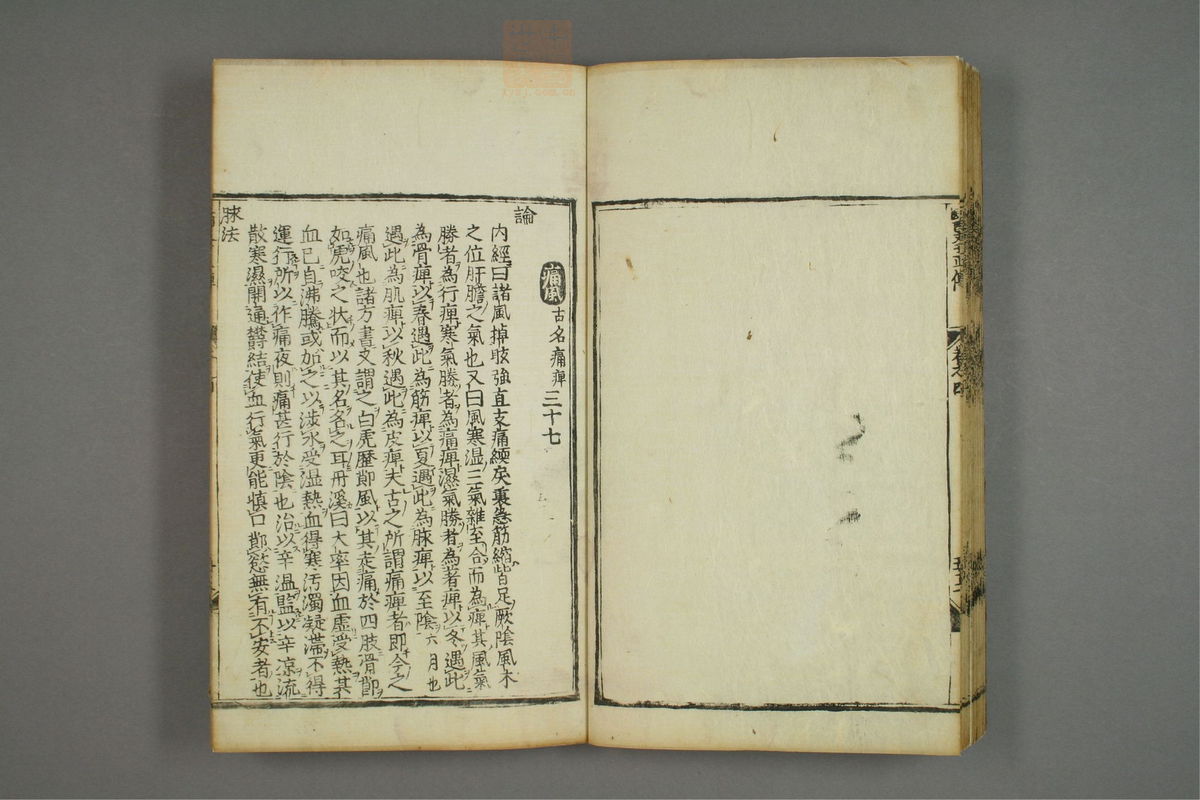 痛風 古名痛痺 三十七
論
内經曰諸風掉眩強直支痛緛戾裏急筋縮皆足厥陰風木
之位肝膽之氣也又曰風寒湿三氣雜至合而為痺其風氣
勝者為行痺寒氣勝者為痛痺濕氣勝者為着痺以冬遇此
為骨痺以春遇此為筋痺以夏遇此為脉痺以至陰六月也
遇此為肌痺以秋遇此為皮痺夫古之所謂痛痺者即今之
痛風也諸方書又謂之白虎歷節風以其走痛於四肢骨節
如虎咬之状而以其名名之耳丹溪曰大率因血虛受熱其
血已自沸騰或加之以涉水受湿熱血得寒汚濁凝滯不得
運行所以作痛夜則痛甚行於陰也治以辛温監以辛凉流
散寒濕開通欝結使血行氣更能慎口節慾無有不安者也
脉法